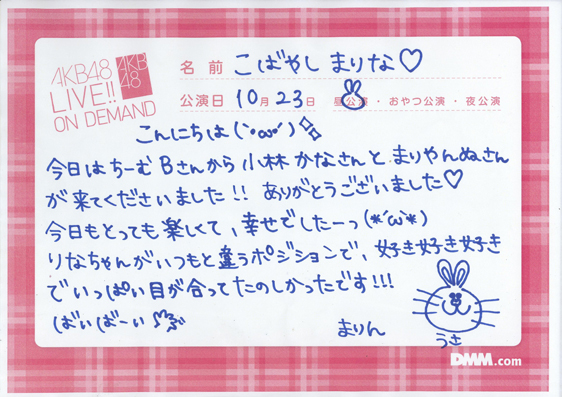 AKB48
LIVE!!
ON DEMAND
AKB
48
名前 こばやし まりな♡
公演日 10月23日 昼公演・おやつ公演・夜公演
こんにちは(`・ω・´)
今日はちーむBさんから小林かなさんとまりやんぬさん
が来てくださいました!! ありがとうございました♡
今日もとっても楽しくて、幸せでしたーっ(*´ω`*)
りなちゃんがいつもと違うポジションで、好き好き好き
でいっぱい目が合ってたのしかったです!!!
ばいばーい
まりん
うさ
DMM.com